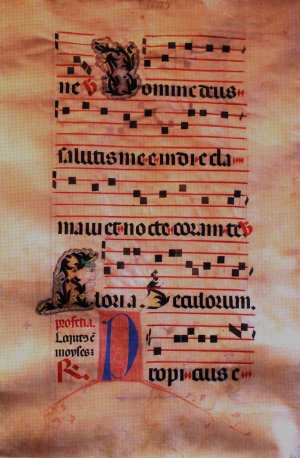 ne ℣ Domine deus
salutis mee in die cla
maui et nocte coram te ℣
Gloria. Seculorum.
profetia.
Loqutus ē
moyses:
R. Propicius e